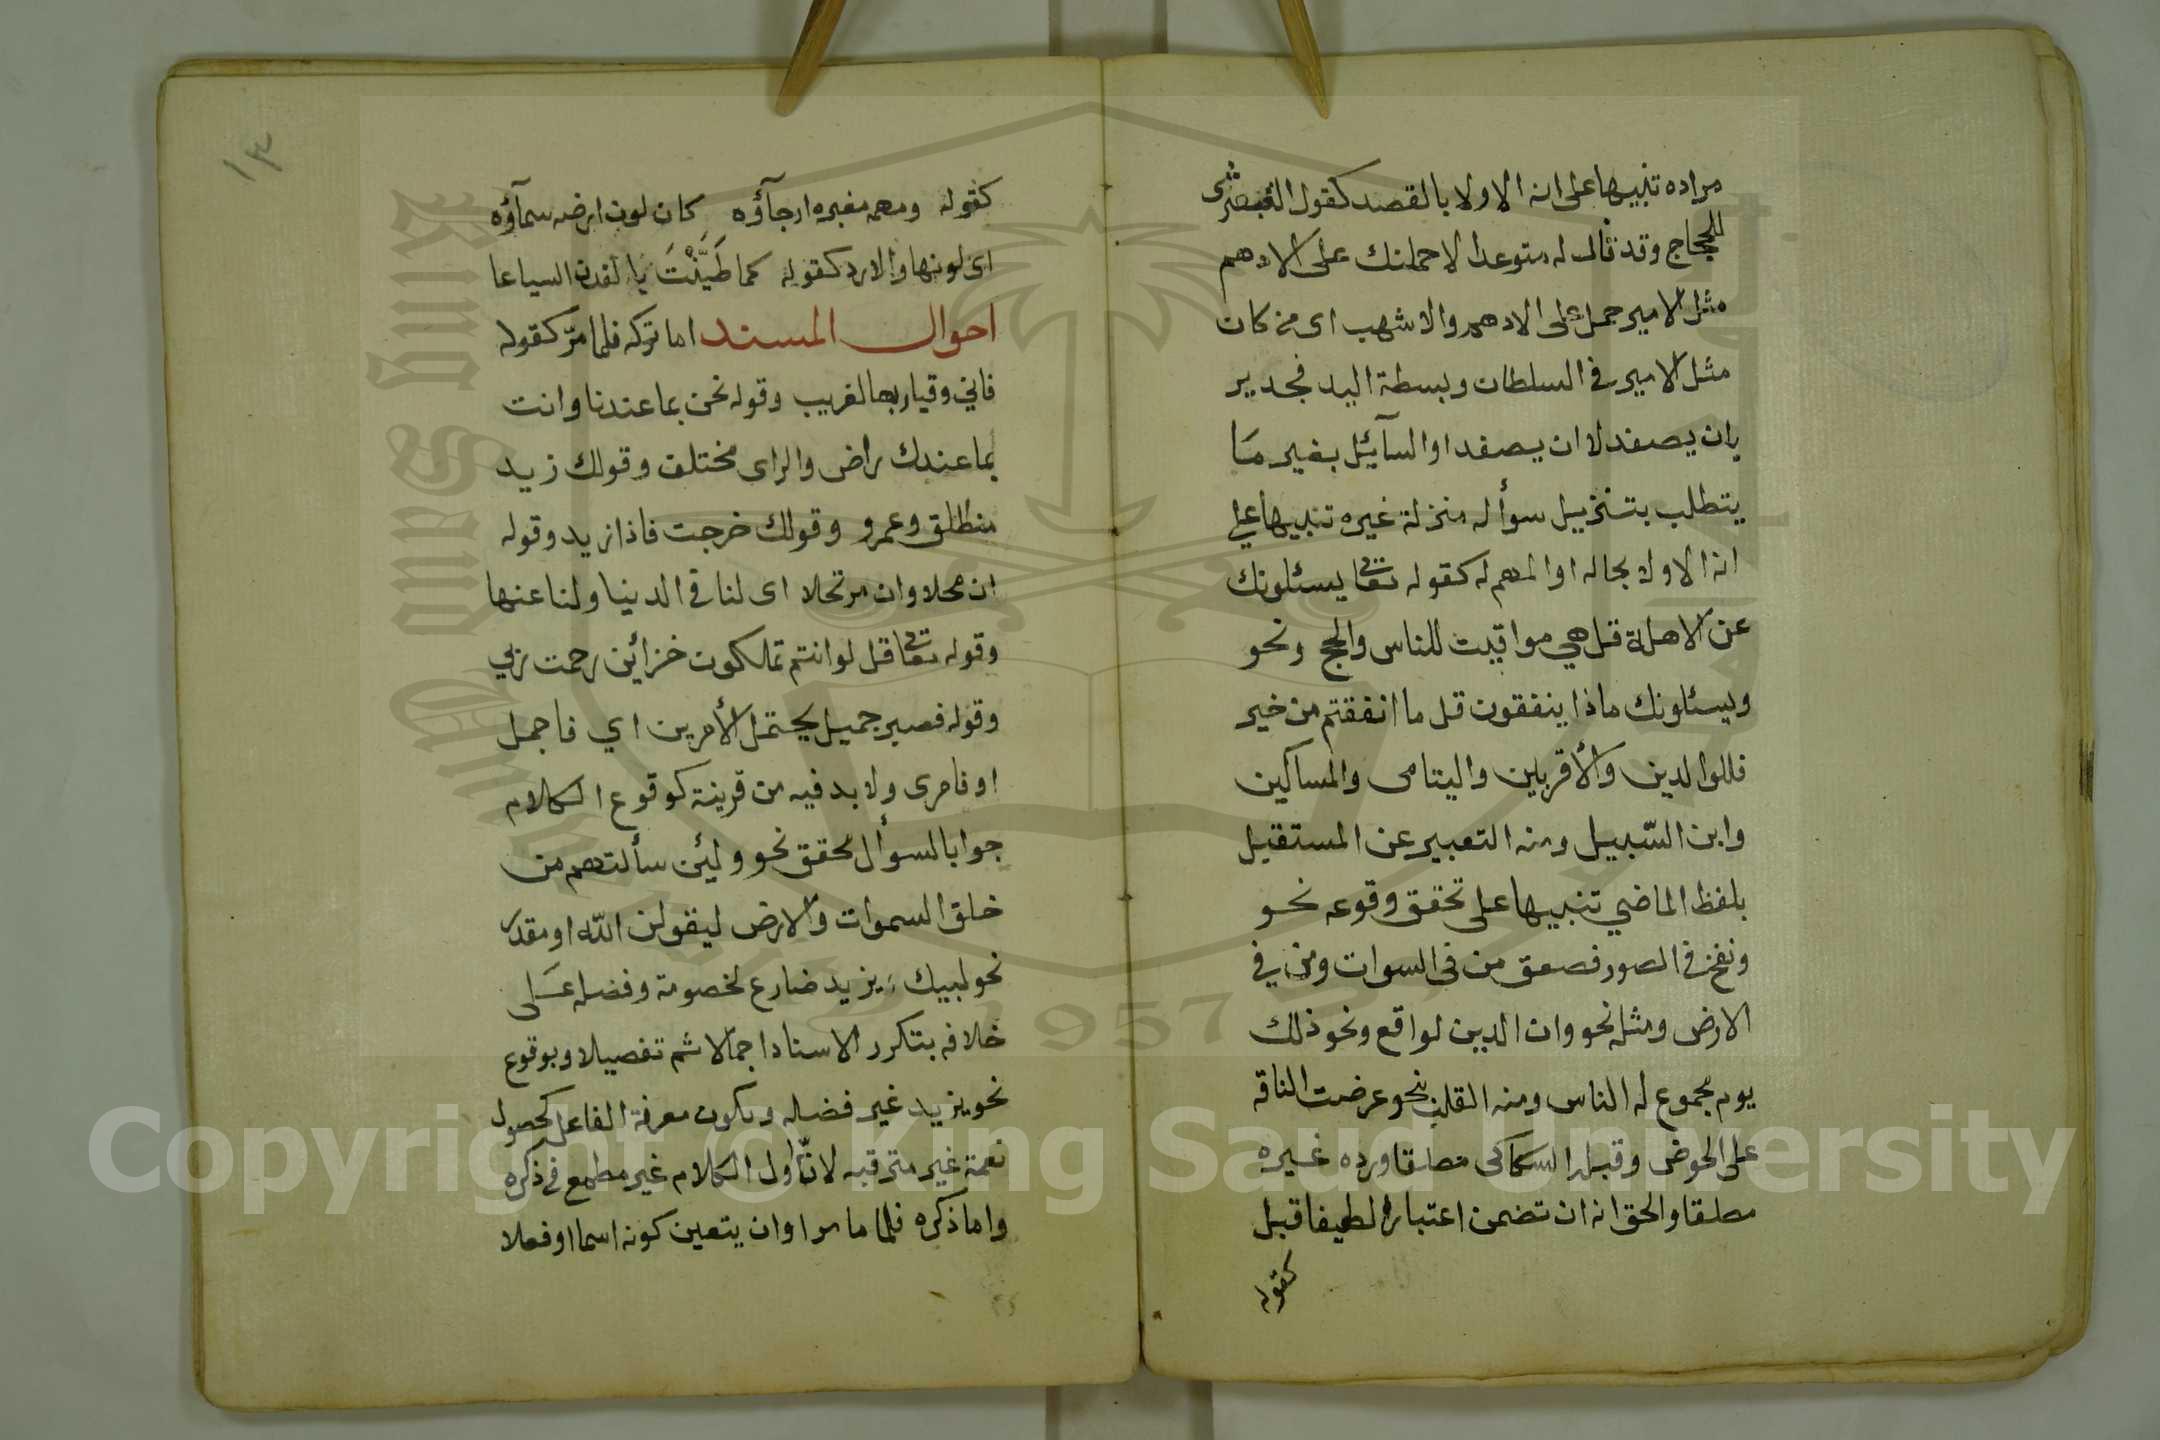 مراده تنبيها على انه الاولا بالقصد كقول القبعثرى
للحجاج وقد قال له متوعدا لاحملنك على الادهم
مثل الامير حمل على الادهم والاشهب اى من كان
مثل الامير فى السلطان وبسطة اليد فجدير
بان يصفد لا ان يصفد او السآئل بغير ما
يتطلب بتنزيل سوأله منزلة غيره تنبيها على
انه الاولا بحاله او المهم له كقوله تعالى يسئلونك
عن الاهلة قل هي مواقيت للناس والحج ونحو
ويسئلونك ماذا ينفقون قل ما انفقتم من خير
فللوالدين والأقربين واليتامى والمساكين
وابن السّبيل ومنه التعبير عن المستقبل
بلفظ الماضي تنبيها على تحقق وقوعه نحو
ونفخ فى الصور فصعق من فى السموات ومن في
الارض ومثله نحو وان الدين لواقع ونحو ذلك
يوم مجموع له الناس ومنه القلب نحو عرضت الناقه
على الحوض وقبله السكاكى مطلقا ورده غيره
مطلقا والحق انه ان تضمن اعتبارا لطيفا قبل
كقوله
١٣
كقوله ومهمه مغبره ارجآؤه كان لون ارضه سمآؤه
اى لونها والا رد كقوله كما طَيَّنْتَ بالفدن السياعا
احوال المسند اما تركه فلما مرّ كقوله
فاني وقيار بها لغريب وقوله نحن بما عندنا وانت
بما عندك راض والراى مختلف وقولك زيد
منطلق وعمرو وقولك خرجت فاذا زيد وقوله
ان محلا وان مرتحلا اى لنا في الدنيا ولنا عنها
وقوله تعالى قل لو انتم تملكون خزائن رحمت ربي
وقوله فصبر جميل يحتمل الأمرين اي فاجمل
او فامرى ولا بد فيه من قرينة كوقوع الكلام
جوابا لسوأل محقق نحو ولئن سألتهم من
خلق السموات والارض ليقولن اللّه او مقدر
نحو لبيك يزيد ضارع لخصومة وفضله على
خلافه بتكرر الاسناد اجمالا ثم تفصيلا وبوقوع
نحو يزيد غير فضله وبكون معرفة الفاعل كحصول
نعمة غير مترقبه لانّ اول الكلام غير مطمع في ذكره
واما ذكره فلما مر او ان يتعين كونه اسما او فعلا
Copyright © King Saud University
King Saud University
1957